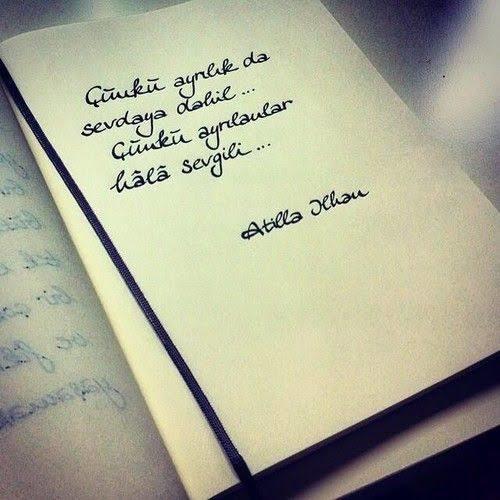 Çünkü ayrılık da
sevdaya dahil ...
Çünkü ayrılanlar
hâlâ sevgili ...
Atilla İlhan